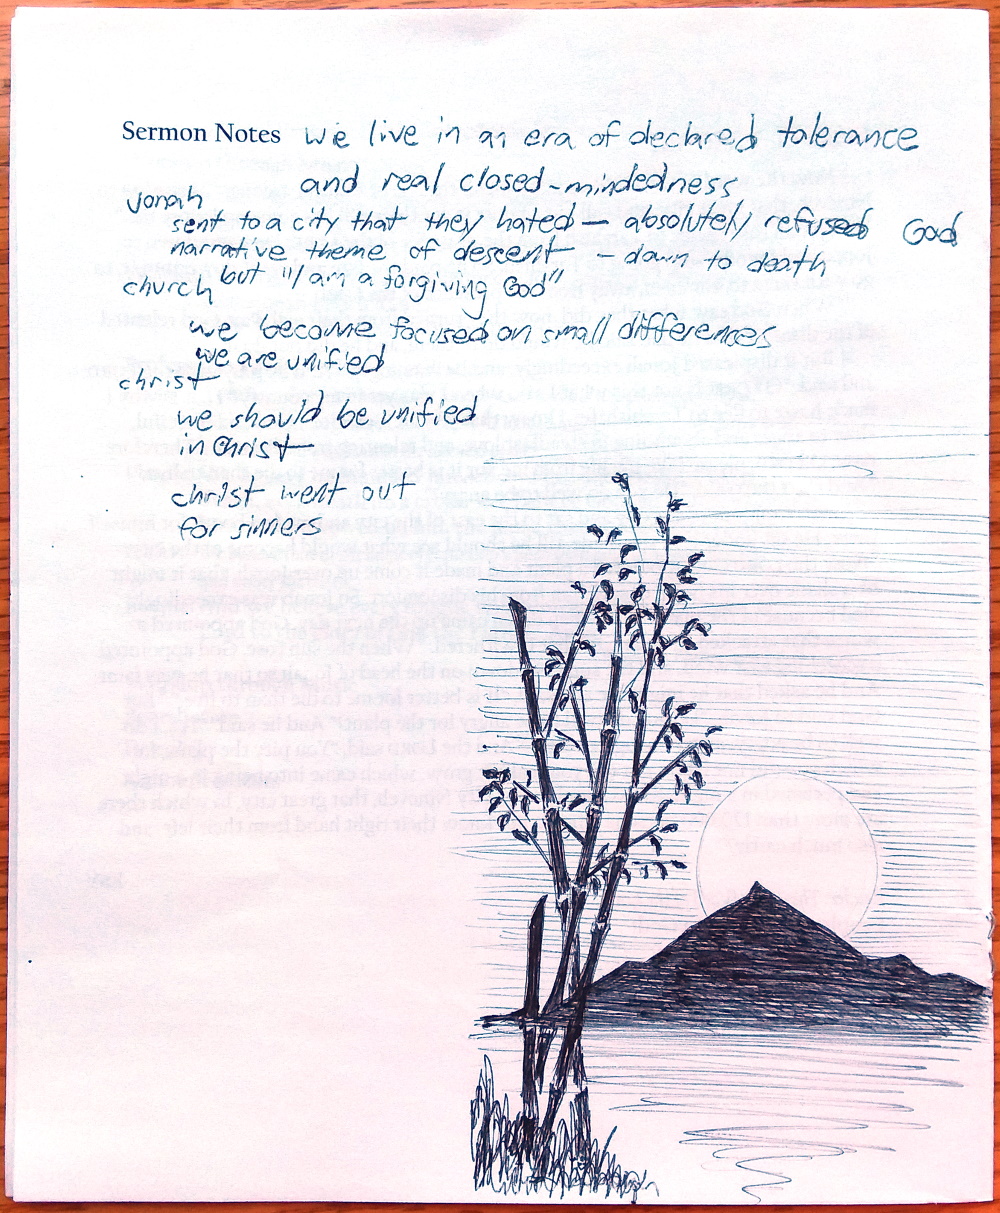 Sermon Notes we live in an era of declared tolerance
and real closed-mindedness
Jonah
sent to a city that they hated — absolutely refused God
narrative theme of descent — down to death
but "I am a forgiving God"
church
we become focused on small differences
we are unified
christ
we should be unified
in Christ
christ went out
for sinners